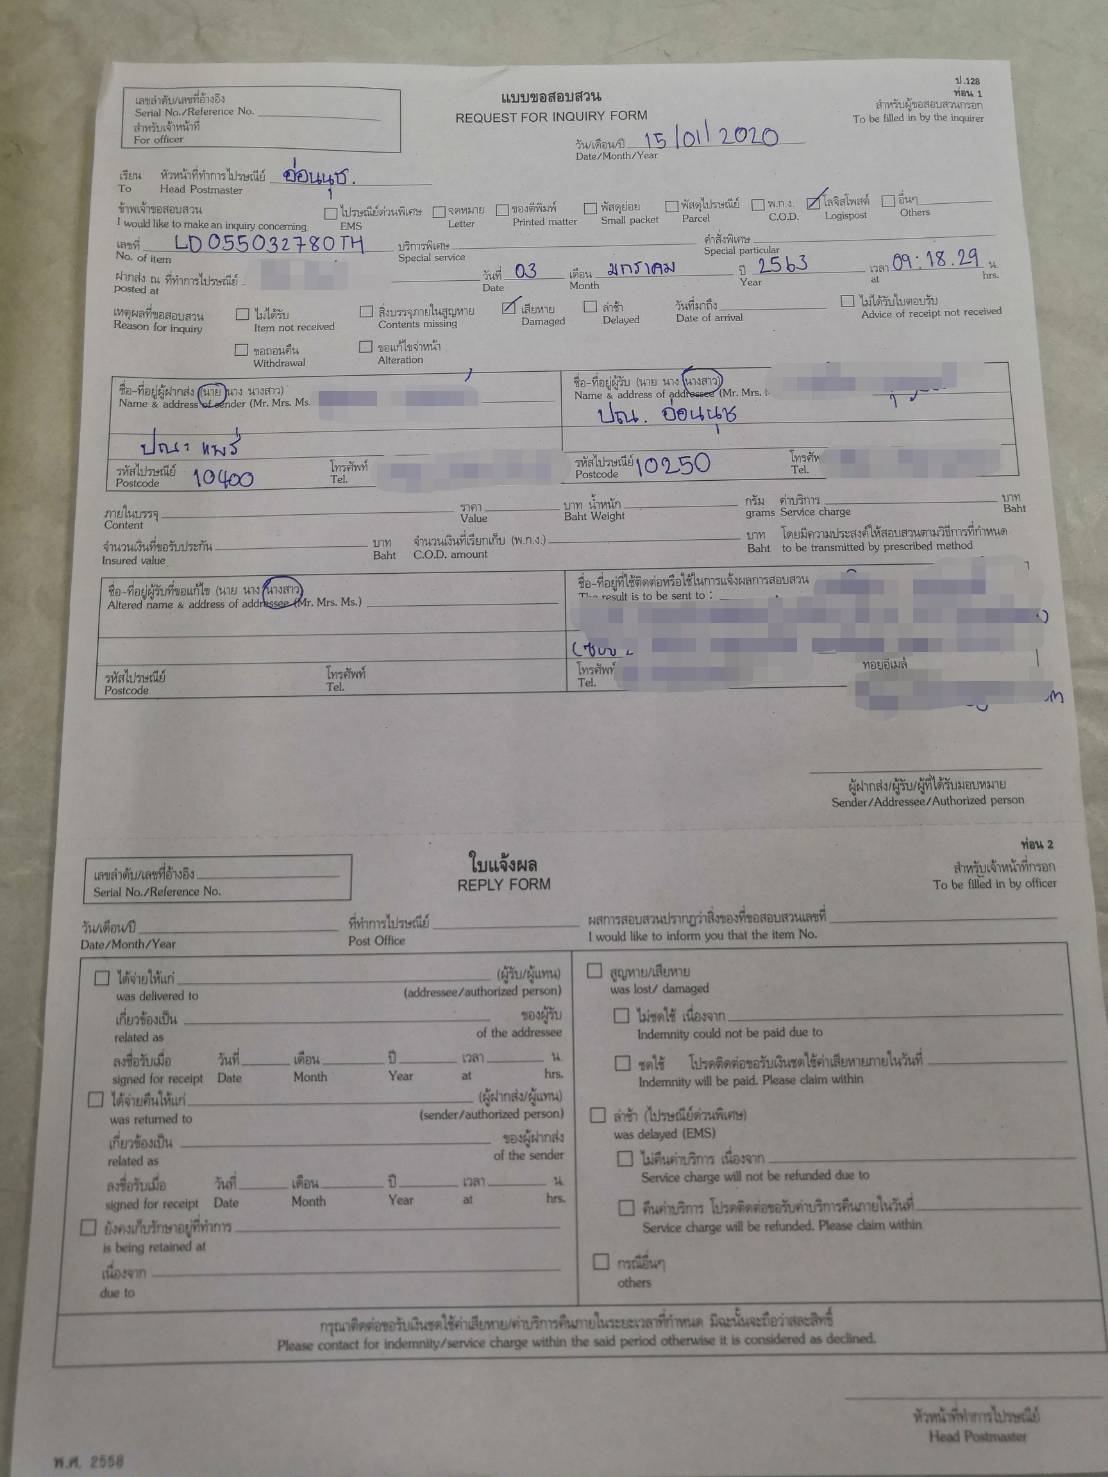 ป.128
ท่อน 1
เลขลำดับ/เลขที่อ้างอิง
Serial No./Reference No.
สำหรับเจ้าหน้าที่
For officer
แบบขอสอบสวน
REQUEST FOR INQUIRY FORM
สำหรับผู้ขอสอบสวนกรอก
To be filled in by the inquirer
วัน/เดือน/ปี 15/01/2020
Date/Month/Year
เรียน หัวหน้าที่ทำการไปรษณีย์ อ่อนนุช.
To Head Postmaster
ข้าพเจ้าขอสอบสวน ไปรษณีย์ด่วนพิเศษ จดหมาย ของตีพิมพ์ พัสดุย่อย พัสดุไปรษณีย์ พ.ก.ง. โลจิสโพสต์ อื่นๆ
I would like to make an inquiry concerning. EMS Letter Printed matter Small packet Parcel C.O.D. Logispost Others
เลขที่ LD055032780TH บริการพิเศษ คำสั่งพิเศษ
No. of item Special service Special particular
ฝากส่ง ณ ที่ทำการไปรษณีย์ วันที่ 03 เดือน มกราคม ปี 2563 เวลา 09:18.29 น.
posted at Date Month Year at hrs.
เหตุผลที่ขอสอบสวน ไม่ได้รับ สิ่งบรรจุภายในสูญหาย เสียหาย ล่าช้า วันที่มาถึง ไม่ได้รับใบตอบรับ
Reason for inquiry Item not received Contents missing Damaged Delayed Date of arrival Advice of receipt not received
ขอถอนคืน ขอแก้ไขจ่าหน้า
Withdrawal Alteration
ชื่อ-ที่อยู่ผู้ฝากส่ง (นาย นาง นางสาว) ชื่อ-ที่อยู่ผู้รับ (นาย นาง นางสาว)
Name & address of sender (Mr. Mrs. Ms. Name & address of addressee (Mr. Mrs.
ปณ. อ่อนนุช
ปณ. แพร่
รหัสไปรษณีย์ 10400 โทรศัพท์ รหัสไปรษณีย์ 10250
Postcode Tel. Postcode Tel.
ภายในบรรจุ ราคา บาท น้ำหนัก กรัม ค่าบริการ บาท
Content Value Baht Weight grams Service charge Baht
จำนวนเงินที่ขอรับประกัน บาท จำนวนเงินที่เรียกเก็บ (พ.ก.ง.) บาท โดยมีความประสงค์ให้สอบสวนตามวิธีการที่กำหนด
Insured value Baht C.O.D. amount Baht to be transmitted by prescribed method
ชื่อ-ที่อยู่ผู้รับที่ขอแก้ไข (นาย นาง นางสาว) ชื่อ-ที่อยู่ที่ใช้ติดต่อหรือใช้ในการแจ้งผลการสอบสวน
Altered name & address of addressee (Mr. Mrs. Ms.) The result is to be sent to :
รหัสไปรษณีย์ โทรศัพท์ โทรศัพท์ ที่อยู่อีเมล์
Postcode Tel. Tel.
ผู้ฝากส่ง/ผู้รับ/ผู้ที่ได้รับมอบหมาย
Sender/Addressee/Authorized person
ท่อน 2
เลขลำดับ/เลขที่อ้างอิง
Serial No./Reference No.
ใบแจ้งผล
REPLY FORM
สำหรับเจ้าหน้าที่กรอก
To be filled in by officer
วัน/เดือน/ปี ที่ทำการไปรษณีย์ ผลการสอบสวนปรากฏว่าสิ่งของที่ขอสอบสวนเลขที่
Date/Month/Year Post Office I would like to inform you that the item No.
ได้จ่ายให้แก่ (ผู้รับ/ผู้แทน)
was delivered to (addressee/authorized person)
เกี่ยวข้องเป็น ของผู้รับ
related as of the addressee
ลงชื่อรับเมื่อ วันที่ เดือน ปี เวลา น.
signed for receipt Date Month Year at hrs.
ได้จ่ายคืนให้แก่ (ผู้ฝากส่ง/ผู้แทน)
was returned to (sender/authorized person)
เกี่ยวข้องเป็น ของผู้ฝากส่ง
related as of the sender
ลงชื่อรับเมื่อ วันที่ เดือน ปี เวลา น.
signed for receipt Date Month Year at hrs.
ยังคงเก็บรักษาอยู่ที่ทำการ
is being retained at
เนื่องจาก
due to
สูญหาย/เสียหาย
was lost/ damaged
ไม่ชดใช้ เนื่องจาก
Indemnity could not be paid due to
ชดใช้ โปรดติดต่อขอรับเงินชดใช้ค่าเสียหายภายในวันที่
Indemnity will be paid. Please claim within
ล่าช้า (ไปรษณีย์ด่วนพิเศษ)
was delayed (EMS)
ไม่คืนค่าบริการ เนื่องจาก
Service charge will not be refunded due to
คืนค่าบริการ โปรดติดต่อขอรับค่าบริการคืนภายในวันที่
Service charge will be refunded. Please claim within
กรณีอื่นๆ
others
กรุณาติดต่อขอรับเงินชดใช้ค่าเสียหาย/ค่าบริการคืนภายในระยะเวลาที่กำหนด มิฉะนั้นจะถือว่าสละสิทธิ์
Please contact for indemnity/service charge within the said period otherwise it is considered as declined.
หัวหน้าที่ทำการไปรษณีย์
Head Postmaster
พ.ศ. 2558